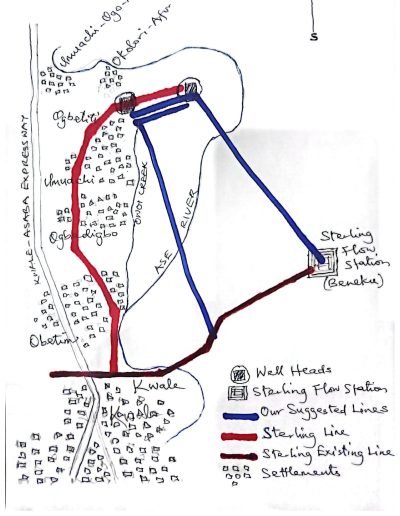 S
Umuachi-Ogo-
Okolori-Afor
Ogbetiti
Umuachi
Ogbadigbo
Obetim
KWALE-ASABA EXPRESSWAY
CREEK
ASE RIVER
Sterling
Flow
Station
(Beneku)
Kwale
Well Heads
Sterling Flow Station
Our Suggested Lines
Sterling Line
Sterling Existing Line
Settlements